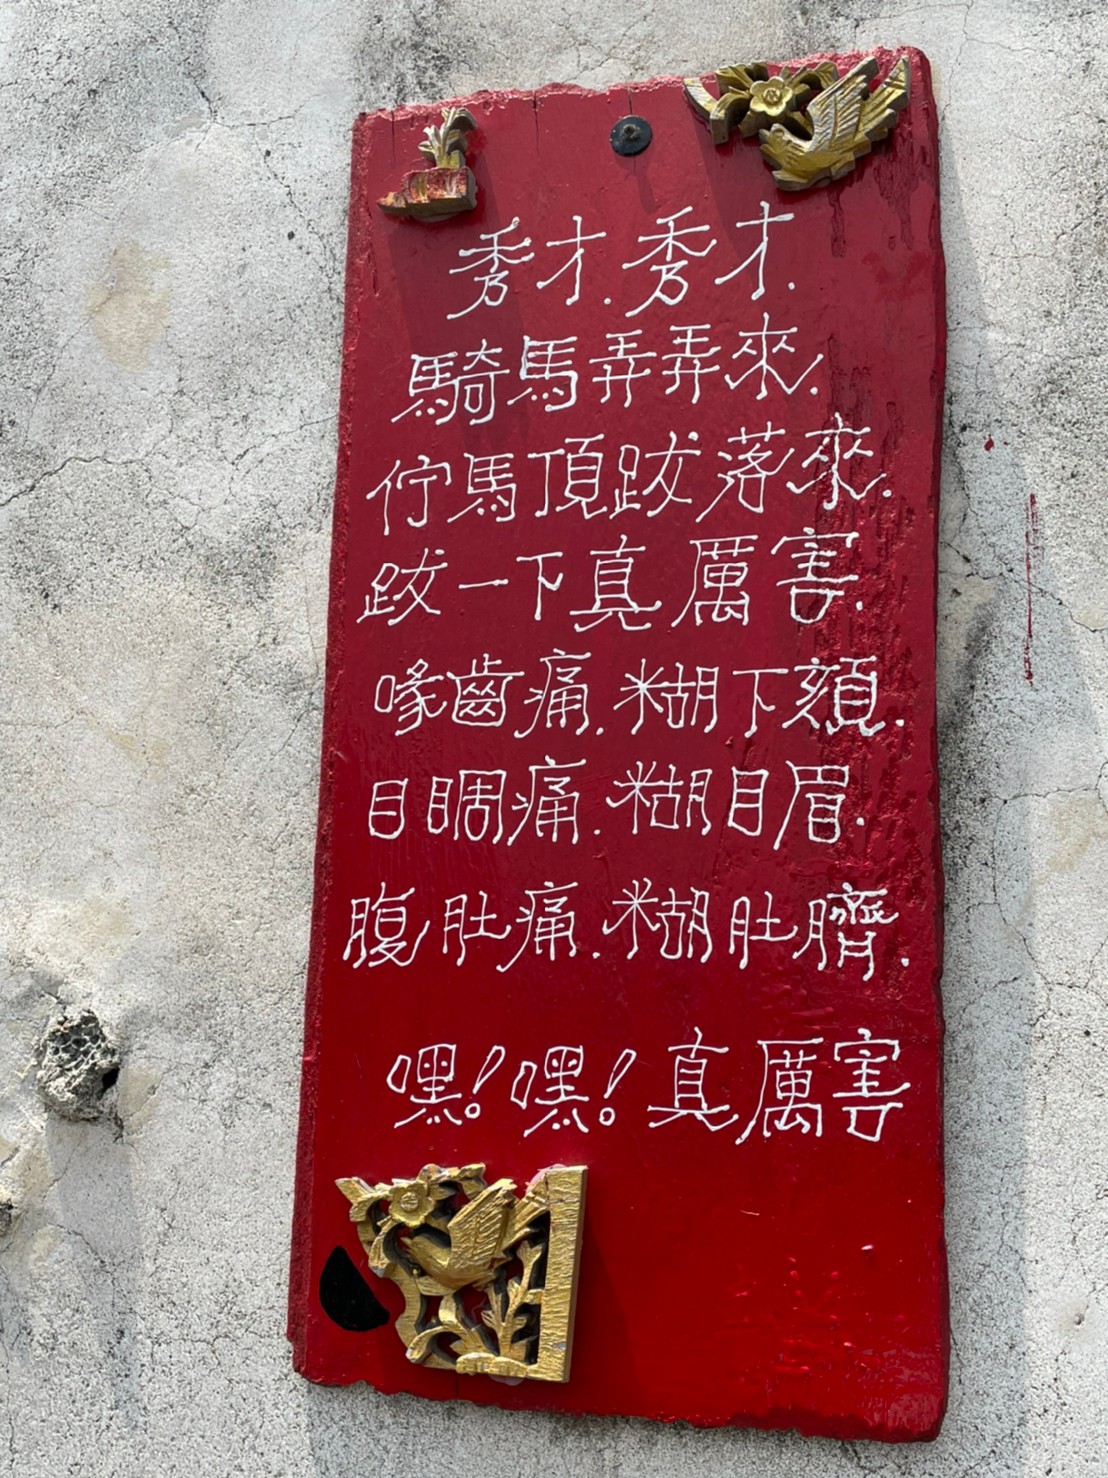 秀才.秀才.
騎馬弄弄來.
佇馬頂跋落來.
跋一下真厲害.
喙齒痛.糊下頦.
目睭痛.糊目眉.
腹肚痛.糊肚臍.
嘿!嘿!真厲害